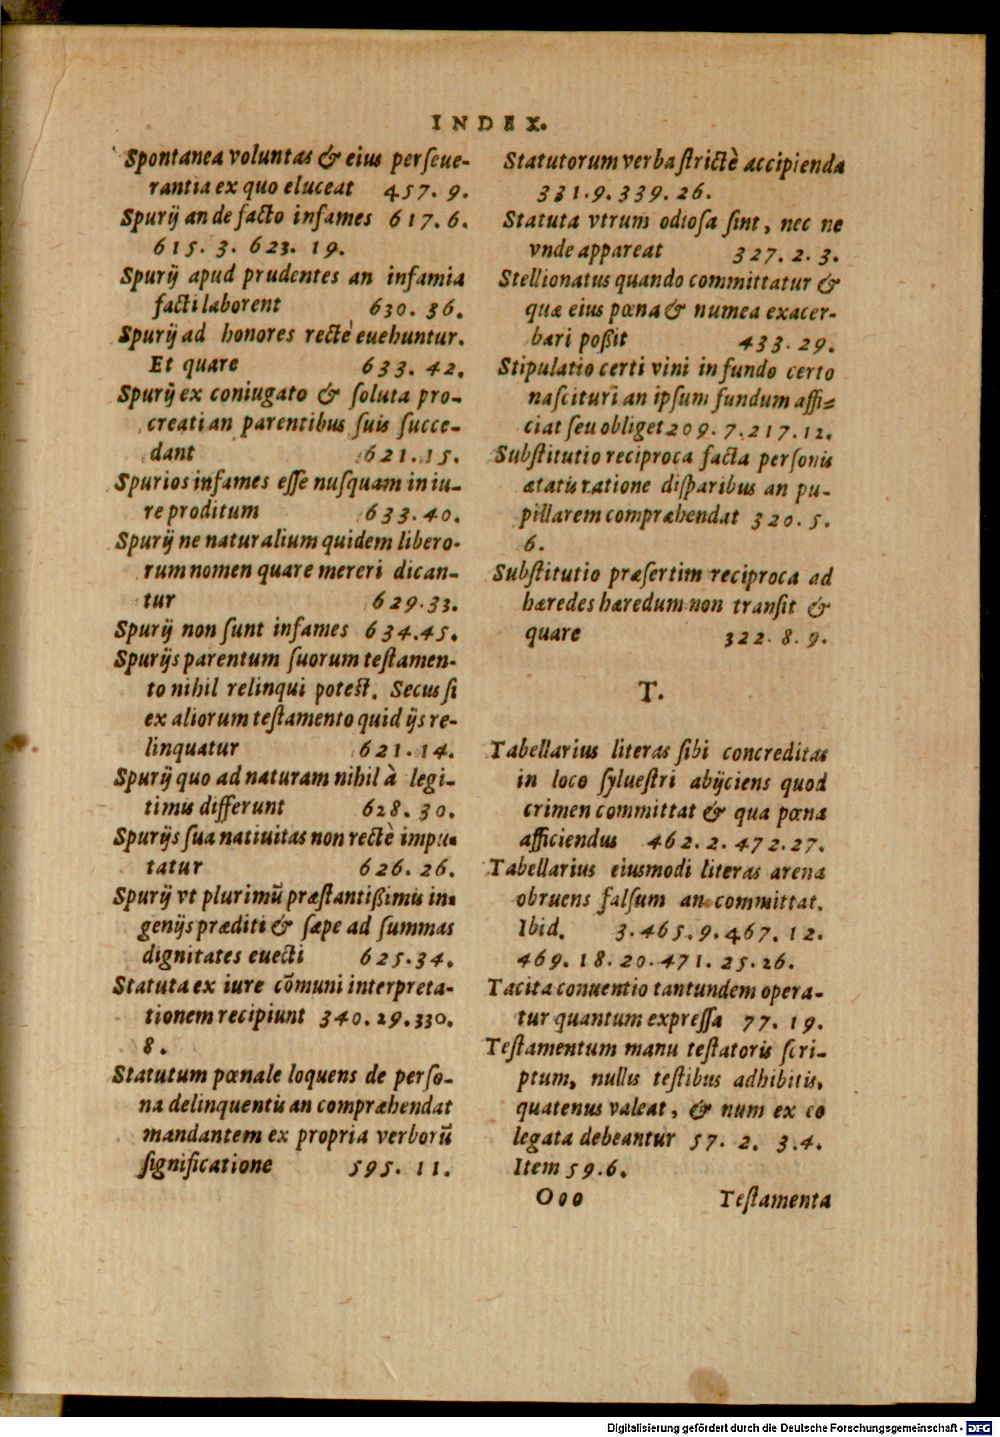 INDEX.
Spontanea voluntas & eius perſeue-
rantia ex quo eluceat 457. 9.
Spurij an de facto infames 617. 6.
615. 3. 623. 19.
Spurij apud prudentes an infamia
facti laborent 630. 36.
Spurij ad honores rectè euehuntur.
Et quare 633. 42.
Spurij ex coniugato & ſoluta pro-
creati an parentibus ſuis ſucce-
dant 621. 15.
Spurios infames eſſe nuſquam in iu-
re proditum 633. 40.
Spurij ne naturalium quidem libero-
rum nomen quare mereri dican-
tur 629. 33.
Spurij non ſunt infames 634. 45.
Spurijs parentum ſuorum teſtamen-
to nihil relinqui poteſt. Secus ſi
ex aliorum teſtamento quid ijs re-
linquatur 621. 14.
Spurij quo ad naturam nihil à legi-
timis differunt 628. 30.
Spurijs ſua natiuitas non rectè impu-
tatur 626. 26.
Spurij vt plurimũ præſtantißimis in-
genijs præditi & ſæpe ad ſummas
dignitates euecti 625. 34.
Statuta ex iure cõmuni interpreta-
tionem recipiunt 340. 29. 330.
8.
Statutum pœnale loquens de perſo-
na delinquentis an compræhendat
mandantem ex propria verborũ
ſignificatione 595. 11.
Statutorum verba ſtrictè accipienda
331. 9. 339. 26.
Statuta vtrum odioſa ſint, nec ne
vnde appareat 327. 2. 3.
Stellionatus quando committatur &
quæ eius pœna & num ea exacer-
bari poßit 433. 29.
Stipulatio certi vini in fundo certo
naſcituri an ipſum fundum affi-
ciat ſeu obliget 209. 7. 217. 12.
Subſtitutio reciproca facta perſonis
ætatis ratione diſparibus an pu-
pillarem compræhendat 320. 5.
6.
Subſtitutio præſertim reciproca ad
hæredes hæredum non tranſit &
quare 322. 8. 9.
T.
Tabellarius literas ſibi concreditas
in loco ſylueſtri abijciens quod
crimen committat & qua pœna
afficiendus 462. 2. 472. 27.
Tabellarius eiusmodi literas arena
obruens falſum an committat.
Ibid. 3. 465. 9. 467. 12.
469. 18. 20. 471. 25. 26.
Tacita conuentio tantundem opera-
tur quantum expreſſa 77. 19.
Teſtamentum manu teſtatoris ſcri-
ptum, nullis teſtibus adhibitis,
quatenus valeat, & num ex eo
legata debeantur 57. 2. 3. 4.
Item 59. 6.
Ooo Teſtamenta
Digitalisierung gefördert durch die Deutsche Forschungsgemeinschaft - DFG